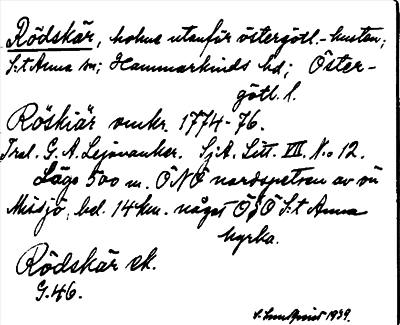 Rödskär, holme utanför östergötl.-kusten;
S:t Anna sn; Hammarkinds hd; Öster-
götl. l.
Röskiär omkr. 1774-76.
Tral. G. A. Lejonanker. SjA. Litt. III. No 12.
Läge 500 m. ÖNÖ nordspetsen av ön
Missjö, bel. 14 km. något ÖSÖ S:t Anna
kyrka.
Rödskär ek.
G.46.
S. Lundqvist 1939.